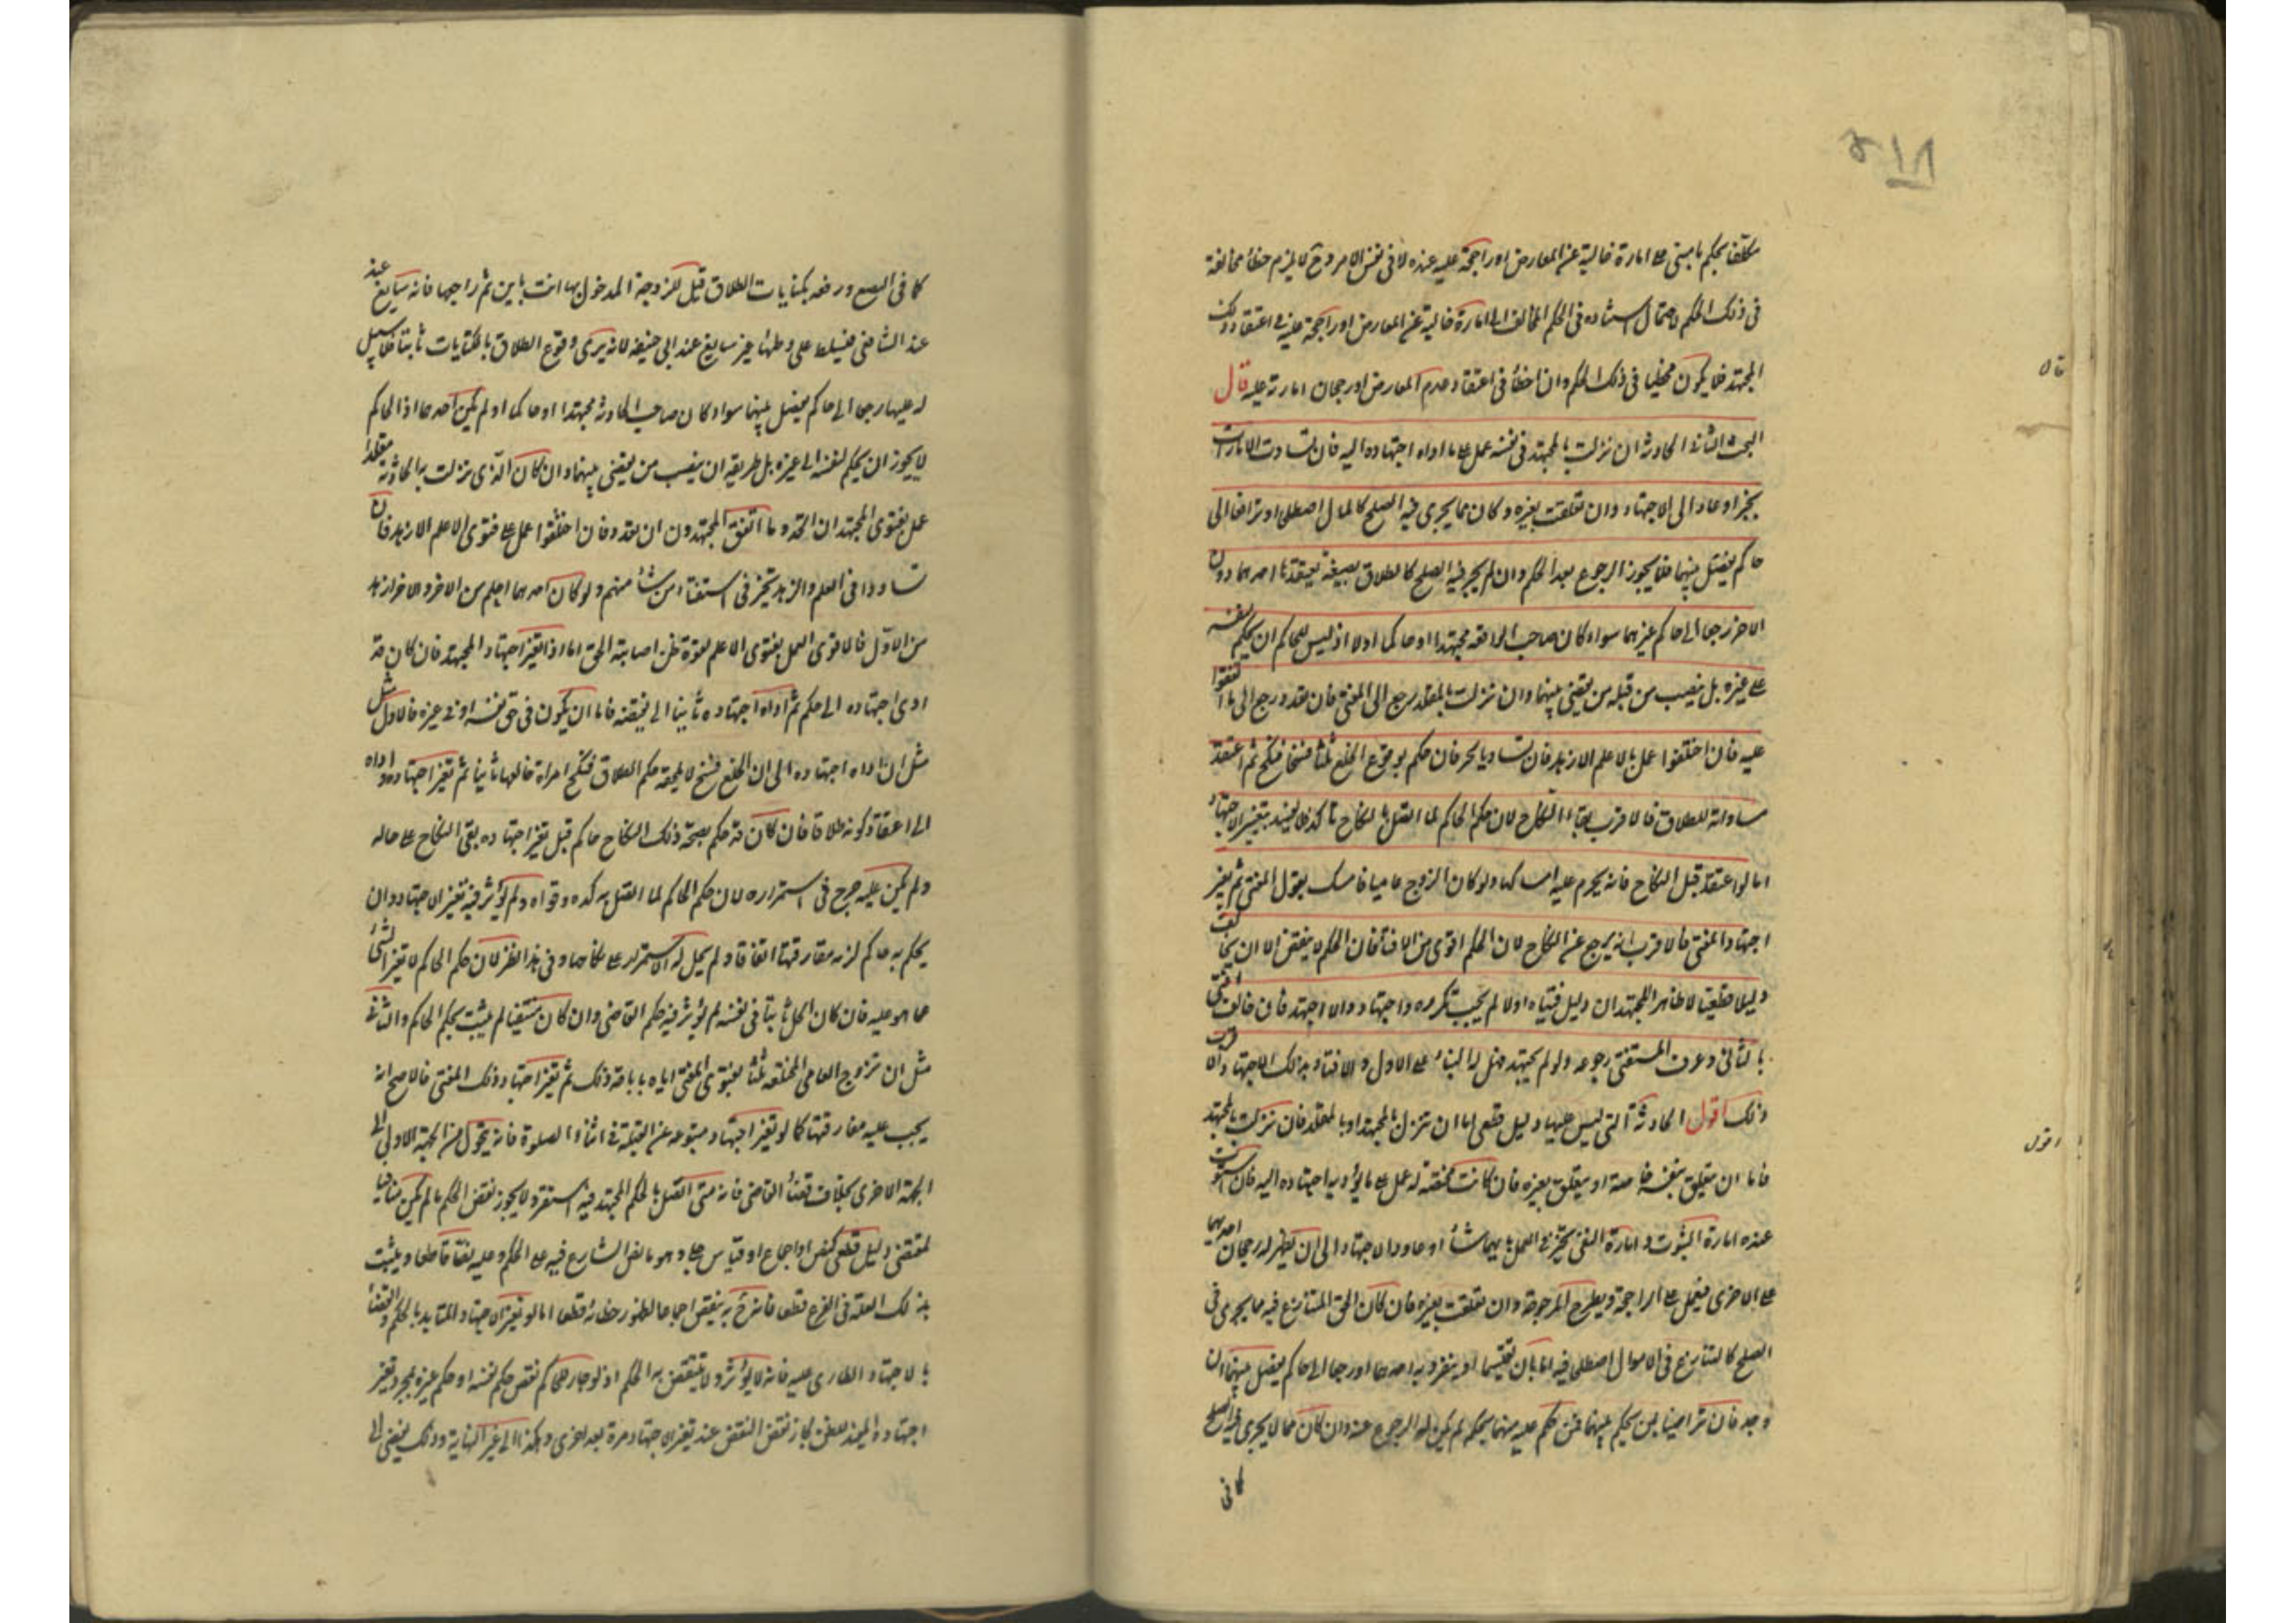 مكلف بحكم ما مبنى على امارة خالية عن المعارض او راجحة عليه عنده لا في نفس الامر وح لا يلزم خطأ مخالفة
في ذلك الحكم لاحتمال استناده في الحكم المخالف الى امارة خالية عن المعارض او راجحة عليه في اعتقاد ذلك
المجتهد فلا يكون مخطيا في ذلك الحكم وان اخطأ في اعتقاد عدم المعارض او رجحان امارته عليه قال
البحث الثاني الحادثة ان نزلت بالمجتهد في نفسه عمل على ما اداه اجتهاده اليه فان تساوت الامارات
تخير او عاود الى الاجتهاد وان تعلقت بغيره وكان مما يجري فيه الصلح كالمال اصطلحا او ترافعا الى
حاكم يفصل بينهما فلا يجوز الرجوع بعد الحكم وان لم يجر فيه الصلح كالطلاق بصيغة يعتقدها احدهما دون
الاخر رجعا الى حاكم غيرهما سواء كان صاحب الواقعة مجتهدا او حاكما او لا اذ ليس للحاكم ان يحكم لنفسه
على غيره بل ينصب من قبله من يقضي بينهما وان نزلت بالمقلد رجع الى المفتي فان تعدد رجع الى ما اتفقوا
عليه فان اختلفوا عمل بالاعلم الازهد فان تساويا تخير فان حكم بوقوع الخلع ثلثا فسخا فنكح ثم اعتقد
مساواته للطلاق فالاقرب بقاء النكاح لان حكم الحاكم لما اتصل بالنكاح تأكد فلا يفسد بتغير الاجتهاد
اما لو اعتقد قبل النكاح فانه يحرم عليه امساكها ولو كان الزوج عاميا فامسك بقول المفتي ثم تغير
اجتهاد المفتي فالاقرب انه يرجع عن النكاح لان الحكم اقوى من الافتاء فان الحكم لا ينقض الا ان يخالف
دليلا قطعيا لا ظاهرا للمجتهد ان دليل فتياه اولا لم يجب تكرره واجتهاده والا اجتهد فان خالف افتى
بالثاني وعرف المستفتي رجوعه ولو لم يجتهد فهل له البناء على الاول والافتاء بذلك الاجتهاد الاقرب
ذلك اقول الحادثة التي ليس عليها دليل قطعي اما ان تنزل بالمجتهد او بالمقلد فان نزلت بالمجتهد
فاما ان يتعلق بنفسه خاصة او يتعلق بغيره فان كانت مختصة له عمل على ما يؤديه اجتهاده اليه فان استوت
عنده امارة الثبوت وامارة النفي تخير في العمل بايهما شاء او عاود الاجتهاد الى ان يظهر له رجحان احديهما
على الاخرى فيعمل على الراجحة ويطرح المرجوحة وان تعلقت بغيره فان كان الحق المتنازع فيه مما يجري في
الصلح كالتنازع في الاموال اصطلحا فيه اما بان يقتسما او ينفرد به احدهما او رجعا الى حاكم يفصل بينهما ان
وجد فان تراضيا بمن يحكم بينهما فمتى حكم عليه منهما بحكم لم يكن له الرجوع عنه وان كان مما لا يجري فيه الصلح
كما في
قال
اقول
كما في البضع ورفعه بكنايات الطلاق قيل للزوجة المدخول بها انت باين ثم راجعها فانه سايغ عند
عند الشافعي فيسلط على وطئها غير سايغ عند ابي حنيفة لانه يرى وقوع الطلاق بالكنايات ثابتا فلا سبيل
له عليها رجعا الى حاكم يفصل بينهما سواء كان صاحب الحادثة مجتهدا او حاكما او لم يكن احدهما اذ الحاكم
لا يجوز ان يحكم لنفسه الى غيره بل طريقه ان ينصب من يقضي بينهما وان كان الذي نزلت به الحادثة مقلدا
عمل بفتوى المجتهد ان اتحد وما اتفق المجتهدون ان تعدد فان اختلفوا عمل على فتوى الاعلم الازهد فان
تساووا في العلم والزهد تخير في استفتاء من شاء منهم ولو كان احدهما اعلم من الاخر والاخر ازهد
من الاول فالاقوى العمل بفتوى الاعلم لقوة ظن اصابته الحق اما اذا تغير اجتهاد المجتهد فان كان قد
ادى اجتهاده الى حكم ثم اداه اجتهاده ثانيا الى نقيضه فاما ان يكون في حق نفسه او في غيره فالاول مثل
مثل ان اداه اجتهاده الى ان الخلع فسخ لا يلحقه حكم الطلاق فنكح امراة خالعها ثانيا ثم تغير اجتهاده واداه
الى اعتقاد كونه طلاقا فان كان قد حكم بصحة ذلك النكاح حاكم قبل تغير اجتهاده بقي النكاح على حاله
ولم يكن عليه حرج في استمراره لان حكم الحاكم لما اتصل به اكده وقواه ولم يؤثر فيه تغير الاجتهاد وان
يحكم به حاكم لزمه مفارقتها اتفاقا ولم يحل له الاستمرار على نكاحها وفي هذا نظر لان حكم الحاكم لا يغير الشئ
عما هو عليه فان كان الحل ثابتا في نفسه لم يؤثر فيه حكم القاضي وان كان منتفيا لم يثبت بحكم الحاكم والثاني
مثل ان تزوج العامي المختلعة ثلثا بفتوى المفتي اياه باباحة ذلك ثم تغير اجتهاد ذلك المفتي فالاصح انه
يجب عليه مفارقتها كما لو تغير اجتهاد متبوعه عن القبلة في اثناء الصلوة فانه يتحول من الجهة الاولى الى
الجهة الاخرى بخلاف قضاء القاضي فانه متى اتصل بالحكم المجتهد فيه استقر ولا يجوز نقض الحكم ما لم يكن منافيا
لمقتضى دليل قطعي كنص او اجماع او قياس جلي وهو ما نص الشارع فيه على الحكم وعلته نصا قاطعا ويثبت
بذلك العلة في الفرع قطعا فانه ح ينقض اجماعا لظهور خطائه قطعا اما لو تغير الاجتهاد المتايد بالحكم والقضاء
بالاجتهاد الطارى عليه فانه لا يؤثر ولا ينتقض به الحكم اذ لو جاز للحاكم نقض حكم نفسه او حكم غيره بمجرد تغير
اجتهاده المفيد للظن لجاز نقض النقض عند تغير الاجتهاد مرة بعد اخرى وهكذا الى غير النهاية وذلك يفضي الى